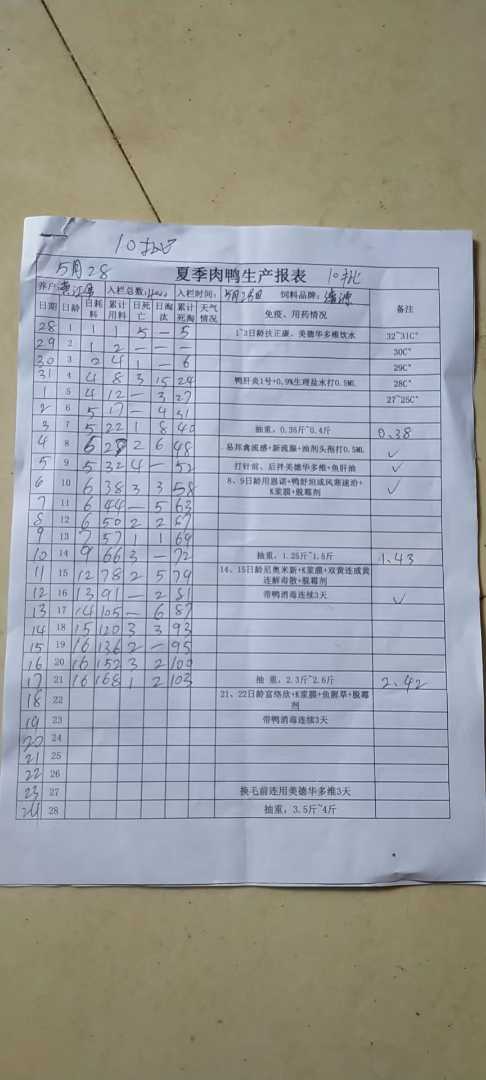 10批
5月28 夏季肉鸭生产报表 10批
养户 入栏总数: 入栏时间: 5月28日 饲料品牌:
日期 日龄 日耗料 累计用料 日死亡 日淘汰 累计死淘 天气情况 免疫、用药情况 备注
28 1 1 1 5 — 5 1~3日龄扶正康、美德华多维饮水 32~31C°
29 2 1 2 — — — 30C°
30 3 2 4 1 — 6 29C°
31 4 4 8 3 15 24 鸭肝炎1号+0.9%生理盐水打0.5ML 28C°
1 5 4 12 — 3 27 27~25C°
2 6 5 17 — 4 31
3 7 5 22 1 8 40 抽重,0.35斤~0.4斤 0.38
4 8 6 28 2 6 48 易邦禽流感+新流腺+油剂头孢打0.5ML ✓
5 9 5 32 4 — 52 打针前、后拌美德华多维+鱼肝油 ✓
6 10 6 38 3 3 58 8、9日龄用恩诺+鸭舒坦或风寒速治+K浆膜+脱霉剂 ✓
7 11 6 44 — 5 63
8 12 6 50 2 2 67
9 13 7 57 1 1 69
10 14 9 66 3 — 72 抽重,1.25斤~1.5斤 1.43
11 15 12 78 2 5 79 14、15日龄尼奥米新+K浆膜+双黄连或黄连解毒散+脱霉剂
12 16 13 91 — 2 81 带鸭消毒连续3天 ✓
13 17 14 105 — 6 87
14 18 15 120 3 3 93
15 19 16 136 2 — 95
16 20 16 152 3 2 100
17 21 16 168 1 2 103 抽 重,2.3斤~2.6斤 2.42
18 22 21、22日龄富络欣+K浆膜+鱼腥草+脱霉剂
19 23 带鸭消毒连续3天
20 24
21 25
22 26
23 27 换毛前连用美德华多维3天
24 28 抽重,3.5斤~4斤